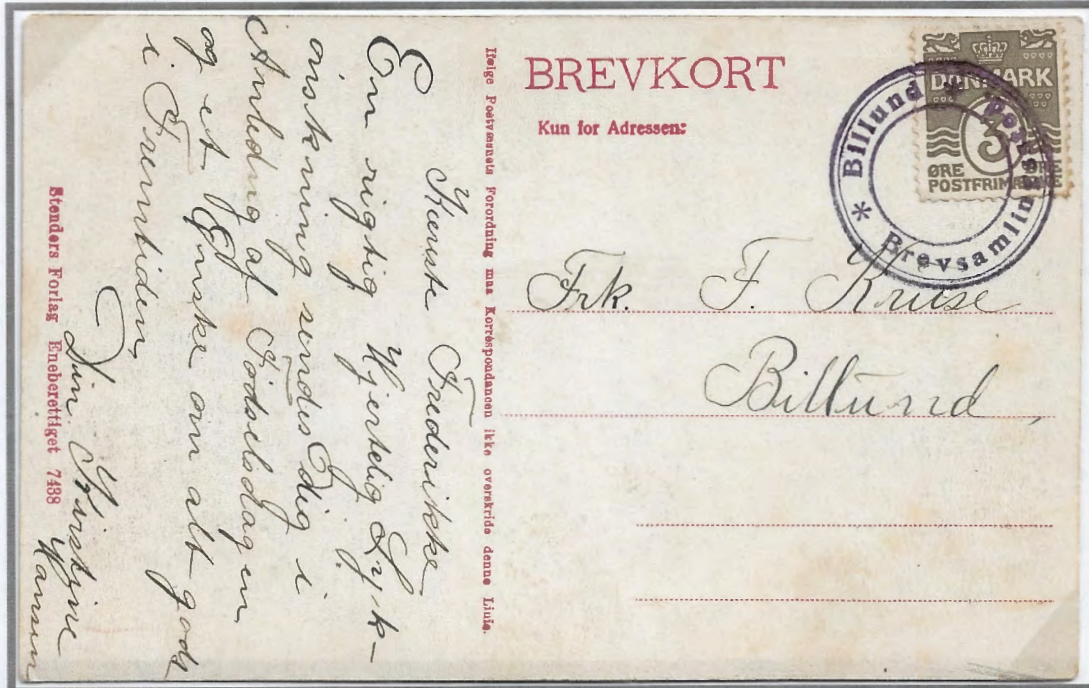 BREVKORT
Kun for Adressen:
DANMARK
3
ØRE
POSTFRIM
* Billund * Brevsamlingssted
Frk. F. Kruse
Billund,
Ifølge Postvæsnets Forordning maa Korrespondancen ikke overskride denne Linie.
Kæreste Frederikke
En rigtig Hjertelig Lyk-
ønskning sendes Dig i
Anledning af Födselsdagen
og et Ønske om alt godt
i Fremtiden,
Din
Hansen
Stenders Forlag Eneberettiget 7438